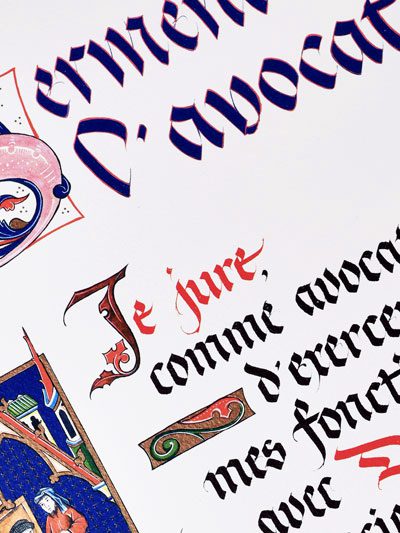 erment
l'avocat
Je jure,
comme avocat
d'exercer
mes foncti
avec